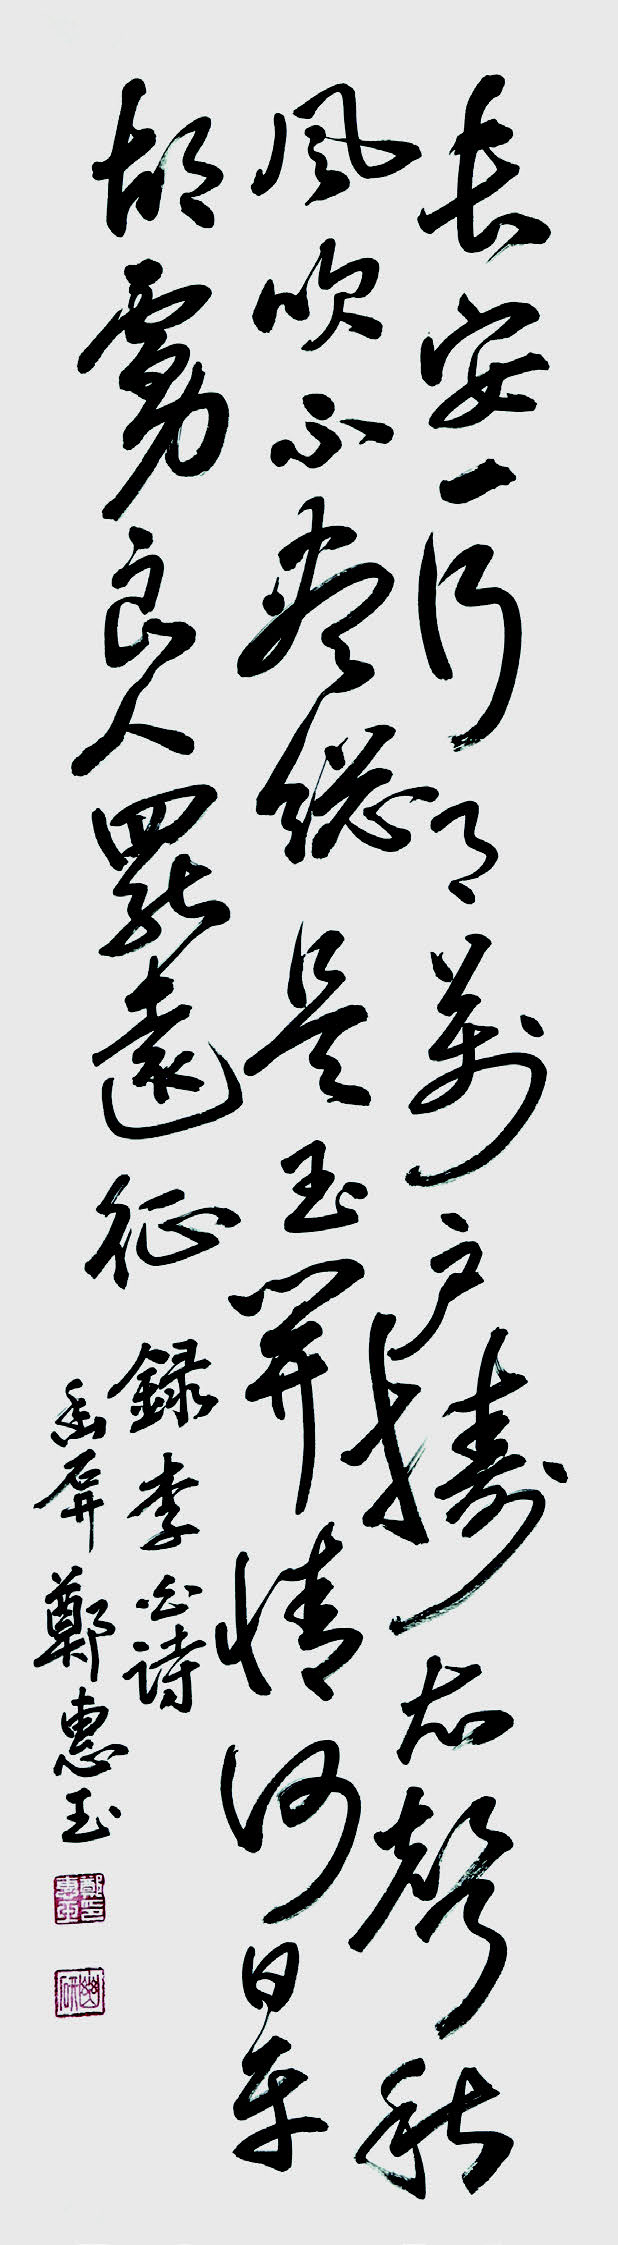 長安一片月萬戶擣衣聲秋
風吹不盡總是玉關情何日平
胡虜良人罷遠征
錄李白詩
幽研鄭惠玉
鄭惠玉印
幽研